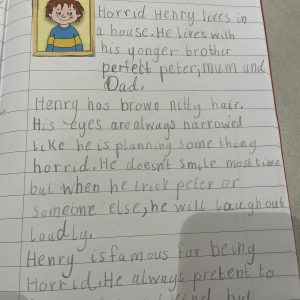 Horrid Henry lives in
a house. He lives with
his yonger brother
perfect peter, mum and
Dad.
Henry has brown nitty hair.
His eyes are always narrowed
like he is planning some thing
horrid. He doesn't smile most time
but when he trick peter or
someone else, he will laugh out
loudly.
Henry is famous for being
Horrid. He always pretent to
kind but